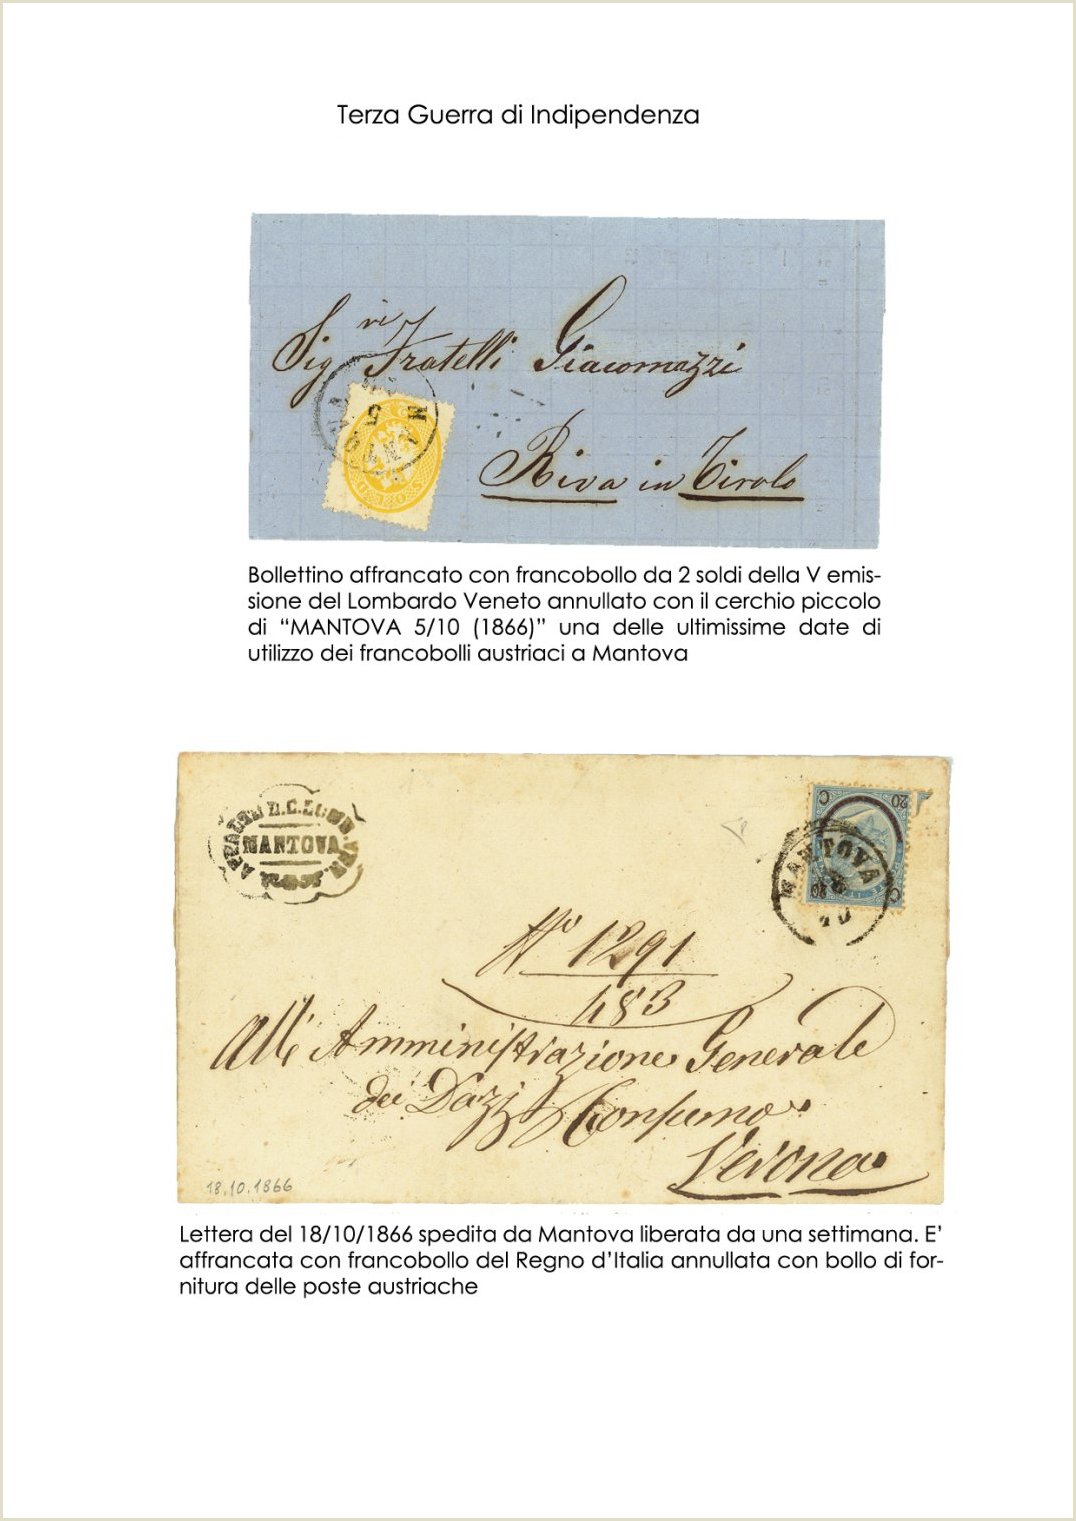 Terza Guerra di Indipendenza
Sigri Fratelli Giacomazzi
Riva in Tirolo
Bollettino affrancato con francobollo da 2 soldi della V emis-
sione del Lombardo Veneto annullato con il cerchio piccolo
di “MANTOVA 5/10 (1866)” una delle ultimissime date di
utilizzo dei francobolli austriaci a Mantova
MANTOVA
C 20
MANTOVA
No 1291
483
All' Amministrazione Generale
dei Dazj Consumo
Verona
18.10.1866
Lettera del 18/10/1866 spedita da Mantova liberata da una settimana. E’
affrancata con francobollo del Regno d’Italia annullata con bollo di for-
nitura delle poste austriache